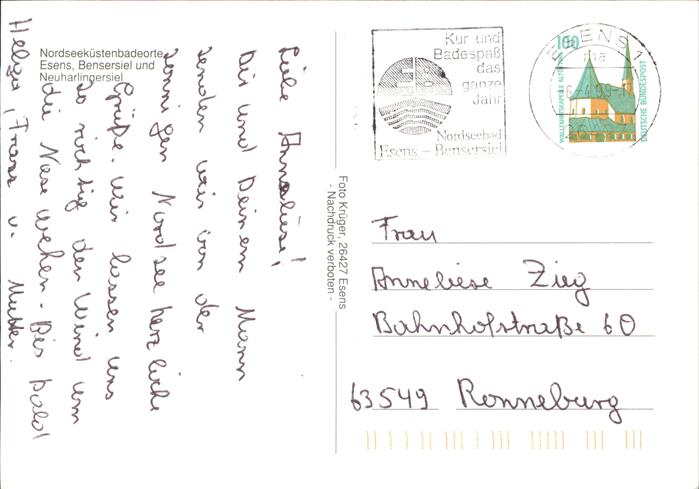 Nordseeküstenbadeorte
Esens, Bensersiel und
Neuharlingersiel
Liebe Anneliese!
Dir und Deinem Mann
senden wir von der
sonnigen Nordsee herzliche
Grüße. Wir lassen uns
so richtig den Wind um
die Nase wehen. Bis bald
Helga, Franz u. Mutter.
Foto Krüger, 26427 Esens
- Nachdruck verboten -
Kur und
Badespaß
das
ganze
Jahr
Nordseebad
Esens – Bensersiel
ESENS 1
100
WALLFAHRTSKAPELLE ALTÖTTING
DEUTSCHE BUNDESPOST
Frau
Anneliese Zieg
Bahnhofstraße 60
63549 Ronneburg